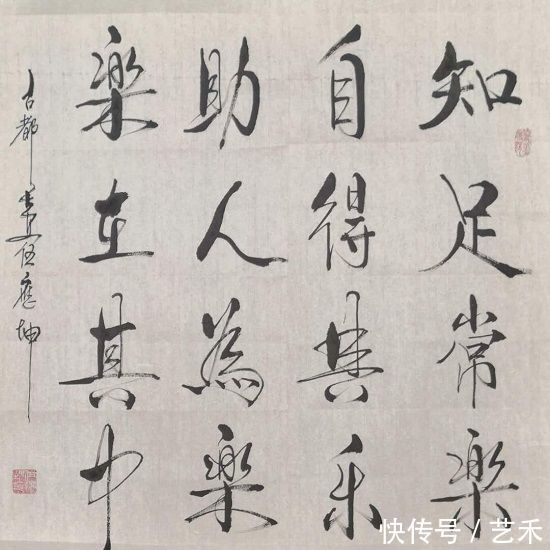 知足常樂
自得其乐
助人為樂
樂在其中
古都長安任應坤
快传号 / 艺禾